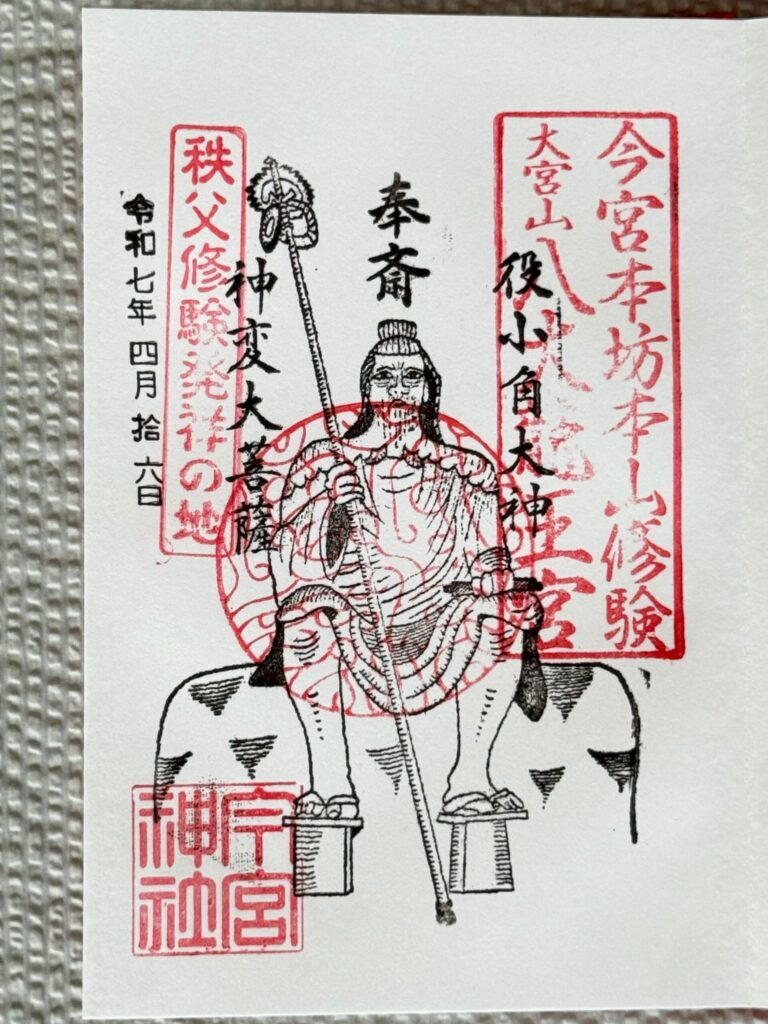 今宮本坊本山修験
大宮山八大龍王宮
役小角大神
奉斎
神変大菩薩
秩父修験発祥の地
令和七年四月拾六日
今宮
神社